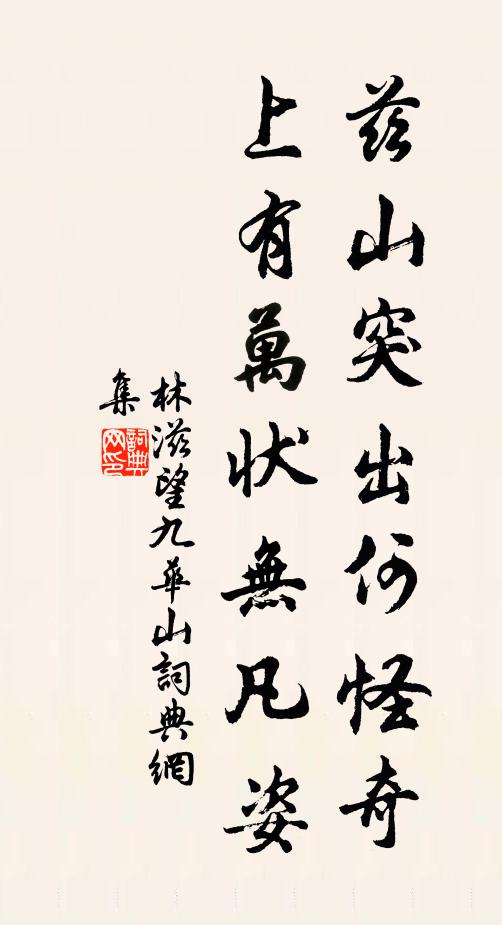 茲山突出何怪奇
上有萬狀無凡姿
林滋望九華山詞典網
集
詞典
网印